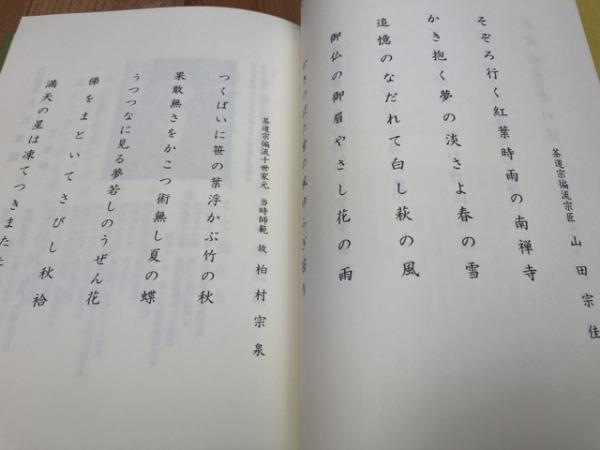 茶道宗偏流宗匠　山田宗佳
そぞろ行く紅葉時雨の南禅寺
かき抱く夢の淡さよ春の雪
追憶のなだれて白し萩の風
御仏の御眉やさし花の雨
茶道宗偏流十世家元　当時師範　故　柏村宗泉
つくばいに笹の葉浮かぶ竹の秋
果敢無さをかこつ術無し夏の蝶
うつつなに見る夢若しのうぜん花
俤をまといてさびし秋袷
満天の星は凍てつきまたた